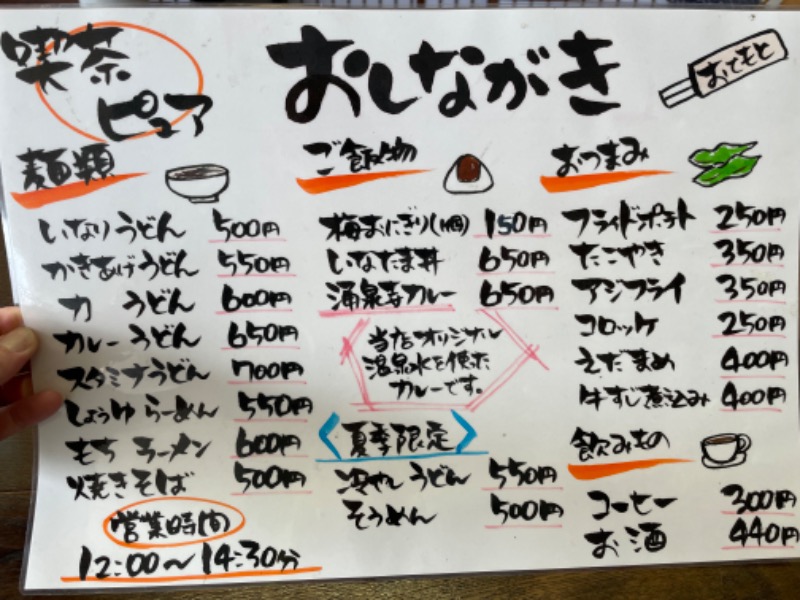 喫茶
ピュア
おしながき
おてもと
麺類
いなりうどん 500円
かきあげうどん 550円
力 うどん 600円
カレーうどん 650円
スタミナうどん 700円
しょうゆらーめん 550円
もち ラーメン 600円
焼きそば 500円
営業時間
12:00～14:30分
ご飯物
梅おにぎり(1個) 150円
いなたま丼 650円
湧泉寺カレー 650円
当店オリジナル
温泉水を使った
カレーです。
夏季限定
冷やしうどん 550円
そうめん 500円
おつまみ
フライドポテト 250円
たこやき 350円
アジフライ 350円
コロッケ 250円
えだまめ 400円
牛すじ煮込み 400円
飲みもの
コーヒー 300円
お酒 440円